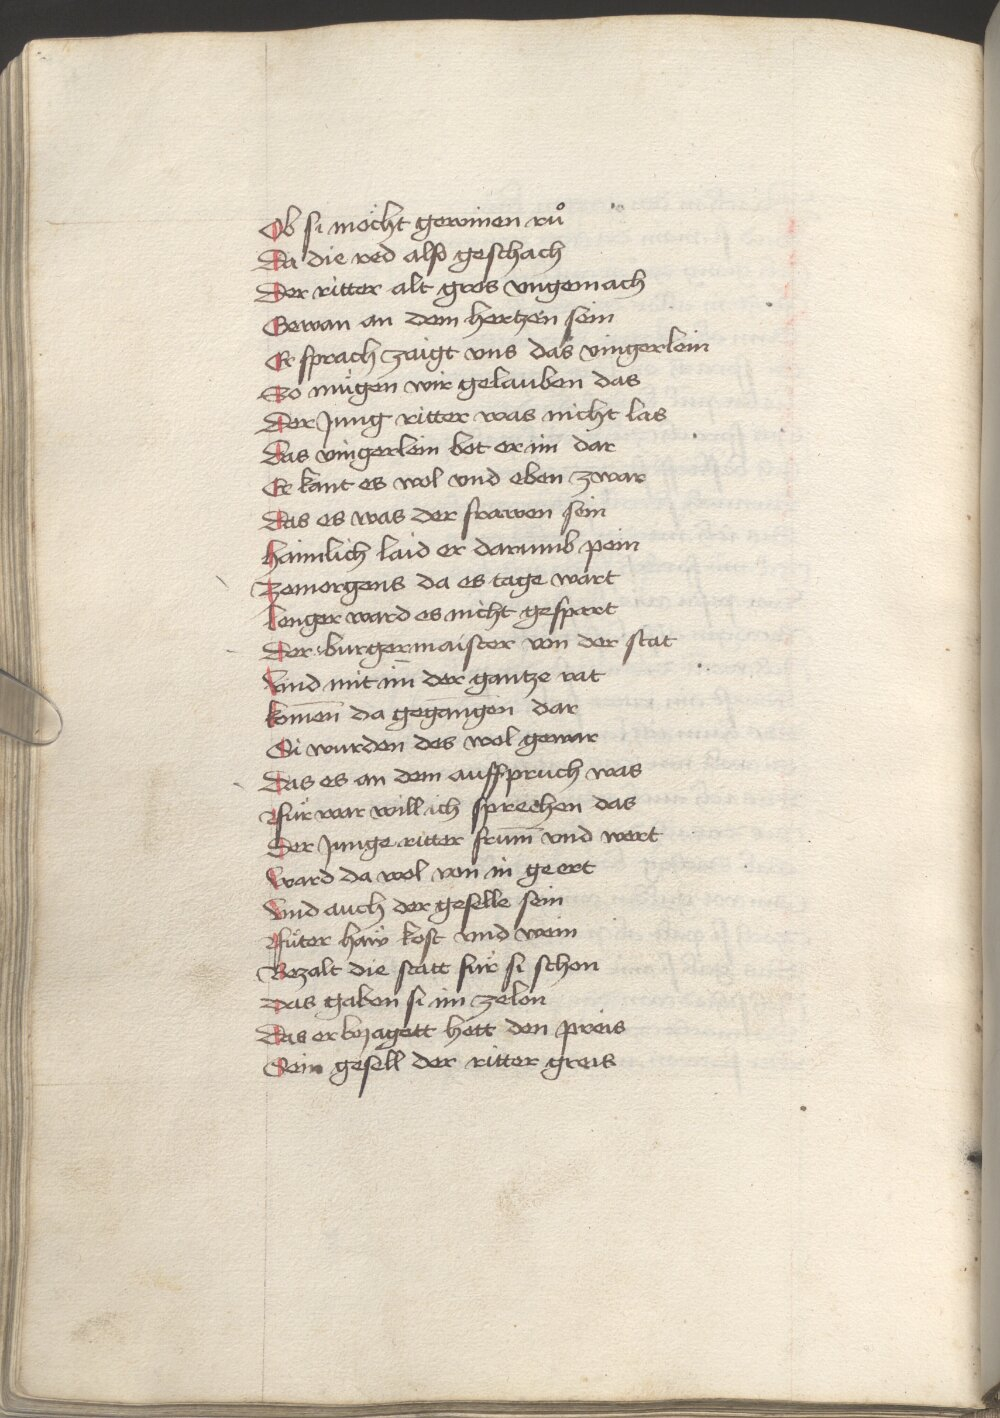 Ob si möcht gewinen rů
Da die red also geschach
Der ritter alt gros vngemach
Gewan an dem hertzen sein
Er sprach zaigt vns das vingerlein
So mügen wir gelauben das
Der Jung ritter was nicht las
Das vingerlein bot er im dar
Er kant es wol vnd eben zwar
Das es was der frawen sein
haimlich laid er darumb pein
Zemorgens da es tage wart
lenger ward es nicht gespart
Der burgermaister von der stat
Vnd mit im̄ der gantze rat
komen̄ da gegangen̄ dar
Si wurden des wol gewar
Das es an dem aufspruch was
für war will ich sprechen das
Der Junge ritter frum̄ vnd wert
Ward da wol von in geert
Vnd auch der geselle sein
füter haẅ kost vnd wein
Bezalt die statt für si schon
Das gaben si im ze lon
Das er beiagett hett den preis
Sein gesell der ritter greis